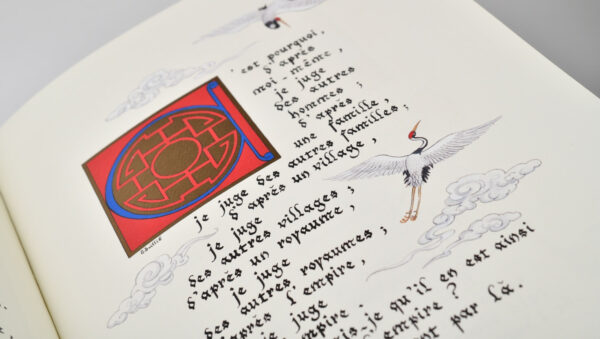 'est pourquoi,
d'après
moi-même,
je juge
des autres
hommes ;
d'après
une famille,
je juge des autres familles ;
d'après un village,
je juge
des autres villages ;
d'après un royaume,
je juge
des autres royaumes ;
d'après l'empire,
je juge
empire ;
ais-je qu'il en est ainsi
empire ?
est par là.